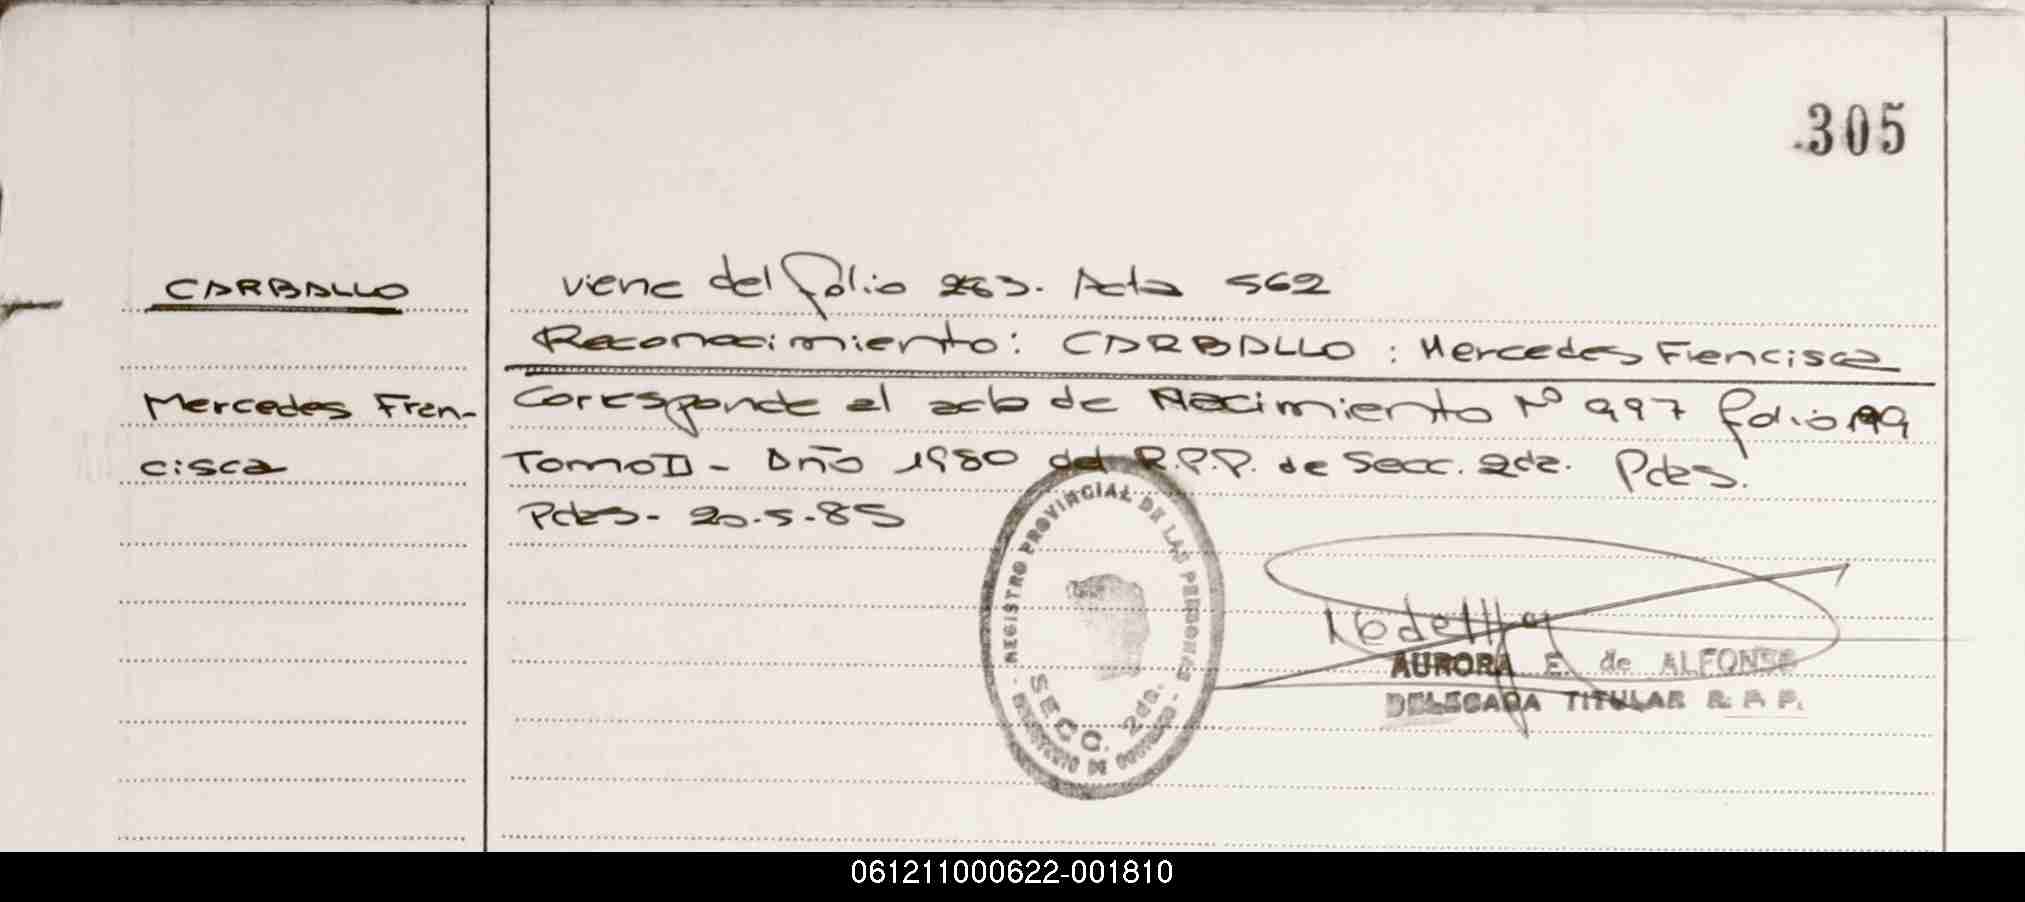 305
CARBALLO
viene del folio 263. Acta 562
Reconocimiento: CARBALLO: Mercedes Francisca
Mercedes Fran-
cisca
Corresponde al acta de Nacimiento Nº 997 folio 199
Tomo II - Año 1980 del R.P.P. de Secc. 2da. Pdas.
Pdas- 20-5-85
REGISTRO PROVINCIAL DE LAS PERSONAS
SECC. 2da.
AURORA E. de ALFONSO
DELEGADA TITULAR R. P. P.
061211000622-001810